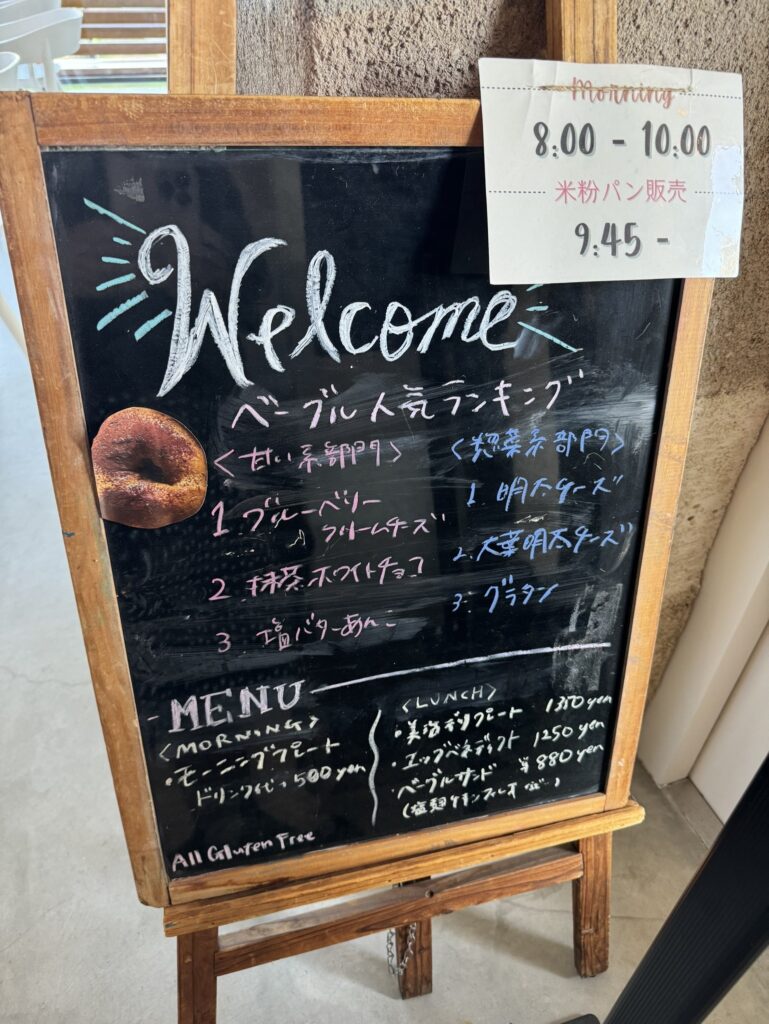 Morning
8:00 - 10:00
米粉パン販売
9:45 -
Welcome
ベーグル人気ランキング
<甘い系部門>
1 ブルーベリー
クリームチーズ
2 抹茶ホワイトチョコ
3 塩バターあんこ
<惣菜系部門>
1. 明太チーズ
2. 大葉明太チーズ
3. グラタン
MENU
<MORNING>
・モーニングプレート
ドリンク代+500yen
<LUNCH>
・美容デリプレート 1350yen
・エッグベネディクト 1250yen
・ベーグルサンド ¥880yen
(塩麹チキン
All Gluten Free